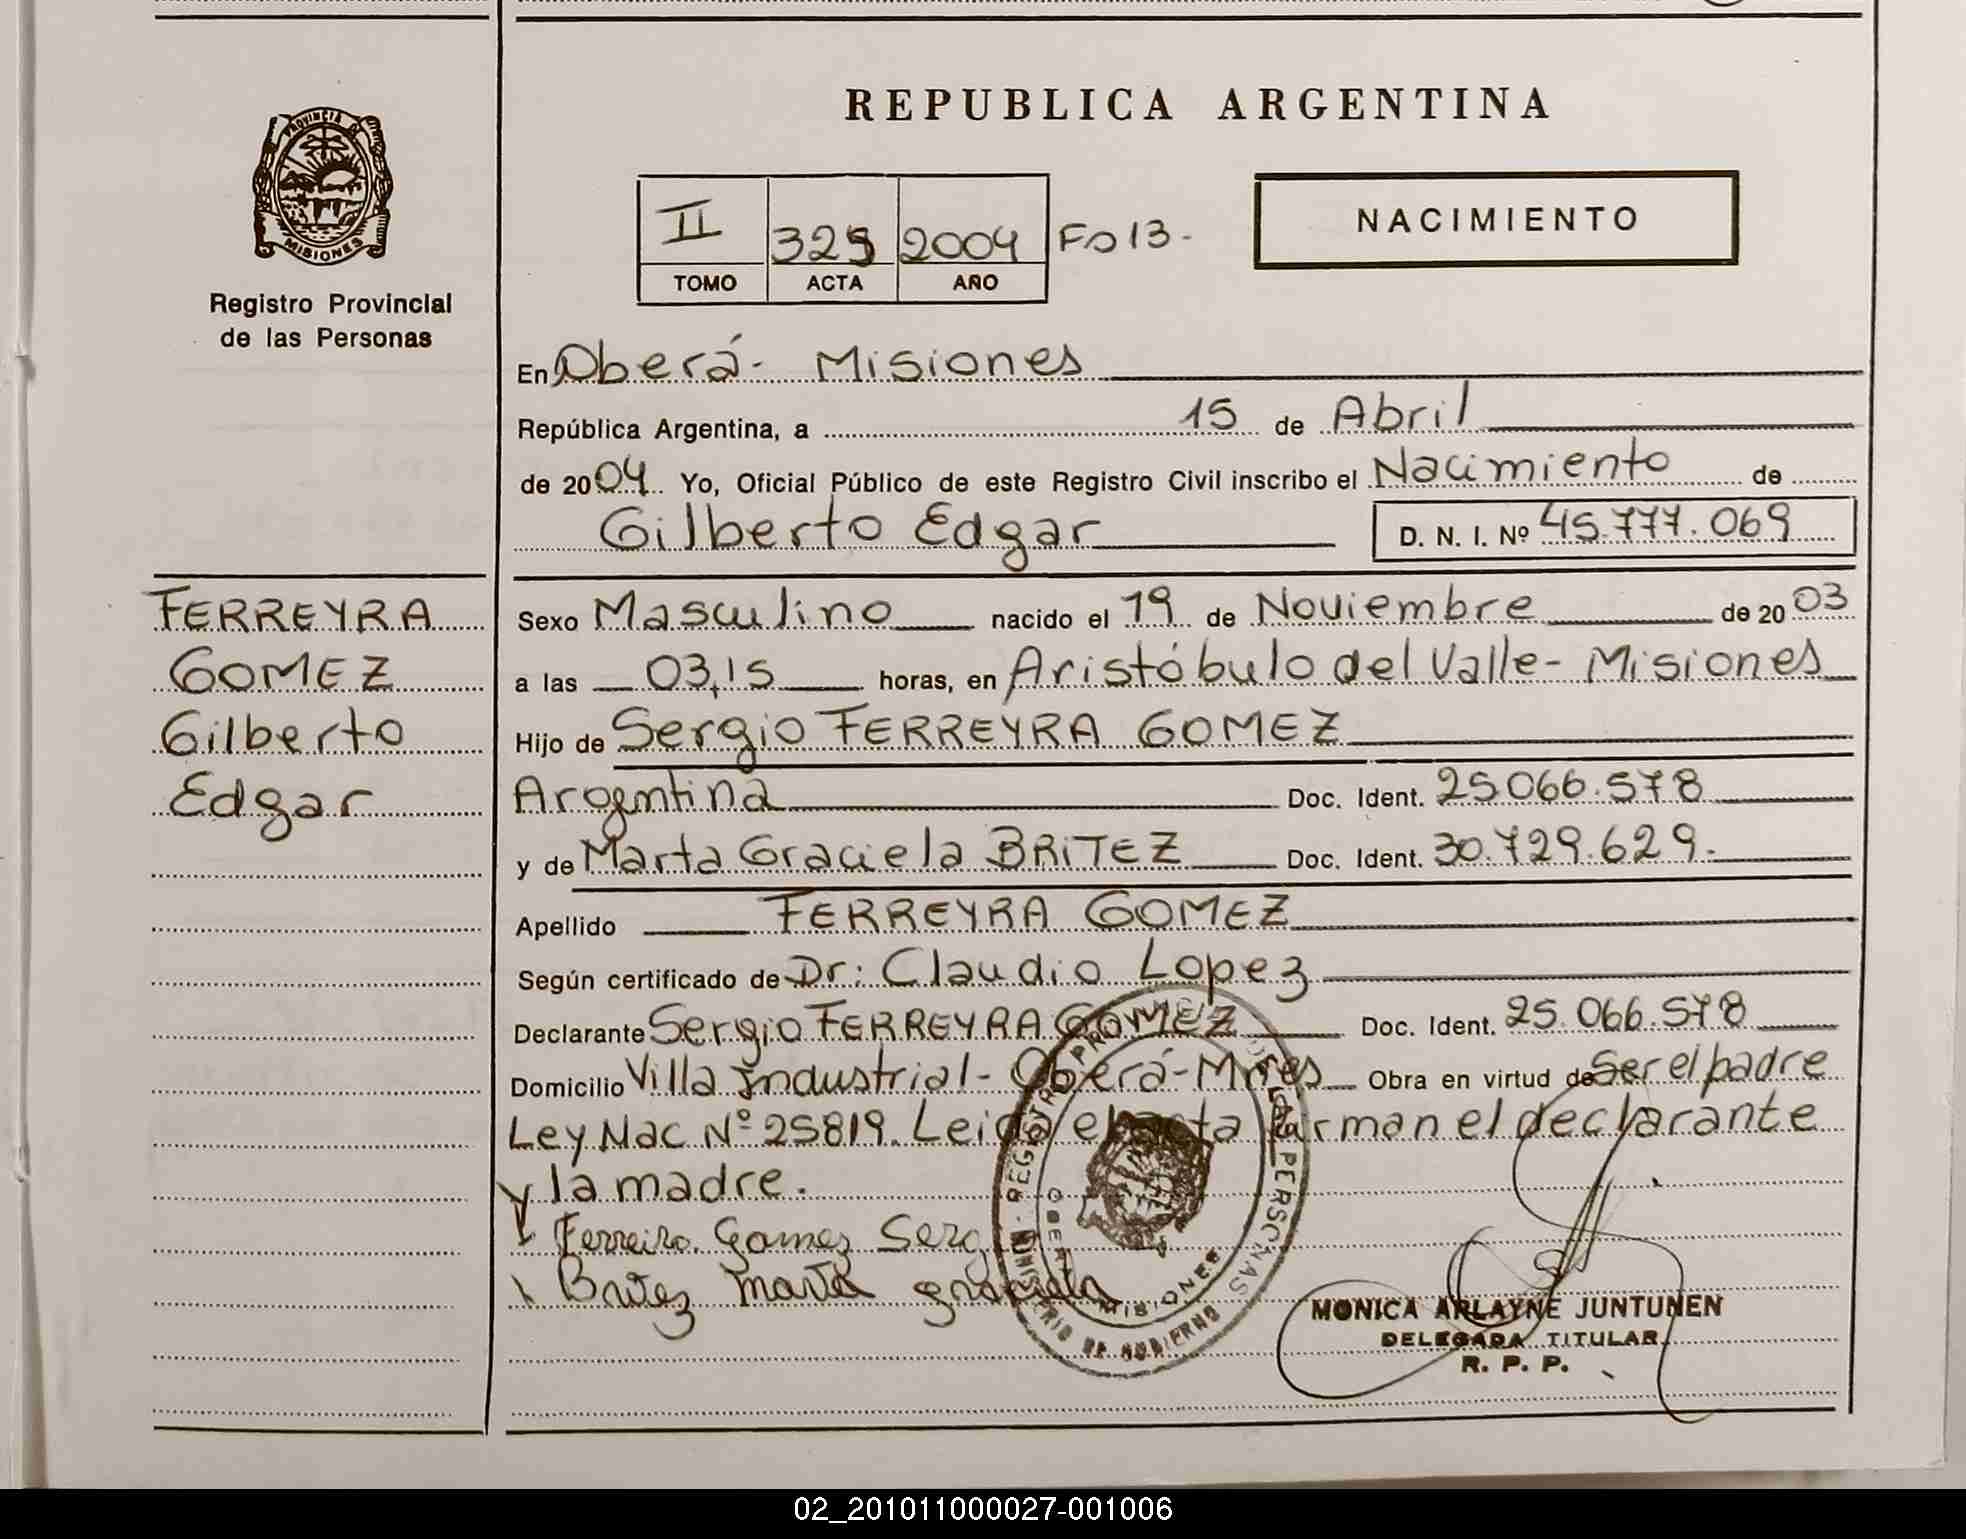 REPUBLICA ARGENTINA
PROVINCIA DE
MISIONES
Registro Provincial
de las Personas
II 2004 Fo 13-
TOMO ACTA AÑO
NACIMIENTO
En Oberá- Misiones
República Argentina, a 15 de Abril
de 2004 Yo, Oficial Público de este Registro Civil inscribo el Nacimiento de
Gilberto Edgar D. N. I. Nº 45.777.069
FERREYRA
GOMEZ
Gilberto
Edgar
Sexo Masculino nacido el 19 de Noviembre de 2003
a las 03,15 horas, en Aristóbulo del Valle- Misiones
Hijo de Sergio FERREYRA GOMEZ
Argentina Doc. Ident. 25.066.578
y de Marta Graciela BRITEZ Doc. Ident. 30.729.629.
Apellido FERREYRA GOMEZ
Según certificado de Dr: Claudio Lopez
Declarante Sergio FERREYRA GOMEZ Doc. Ident. 25.066.578
Domicilio Villa Industrial- Oberá-Mnes Obra en virtud de Ser el padre
Ley Nac Nº 25819. Leida el acta firman el declarante
y la madre.
Ferreira Gomez Serg
Britez Marta graciela
REGISTRO PROVINCIAL DE LAS PERSONAS
MINISTERIO DE GOBIERNO
OBERA
MISIONES
MONICA ARLAYNE JUNTUNEN
DELEGADA TITULAR
R. P. P.
02_201011000027-001006